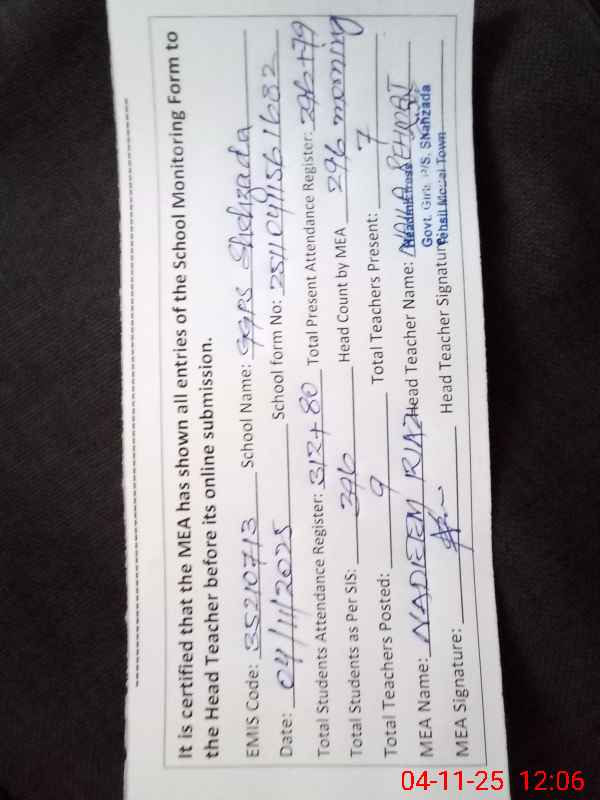 It is certified that the MEA has shown all entries of the School Monitoring Form to
the Head Teacher before its online submission.
EMIS Code: 35210713 School Name: GGPS Shahzada
Date: 04/11/2025 School form No: 25110411561682
Total Students Attendance Register: 312+80 Total Present Attendance Register: 296+79
Total Students as Per SIS: 396 Head Count by MEA 296 morning
Total Teachers Posted: 9 Total Teachers Present: 7
MEA Name: NADEEM RIAZ Head Teacher Name: NAILA REHMAT
Headmistress
Govt. Girls P/S. Shahzada
Tehsil Model Town
MEA Signature: Head Teacher Signature
04-11-25 12:06